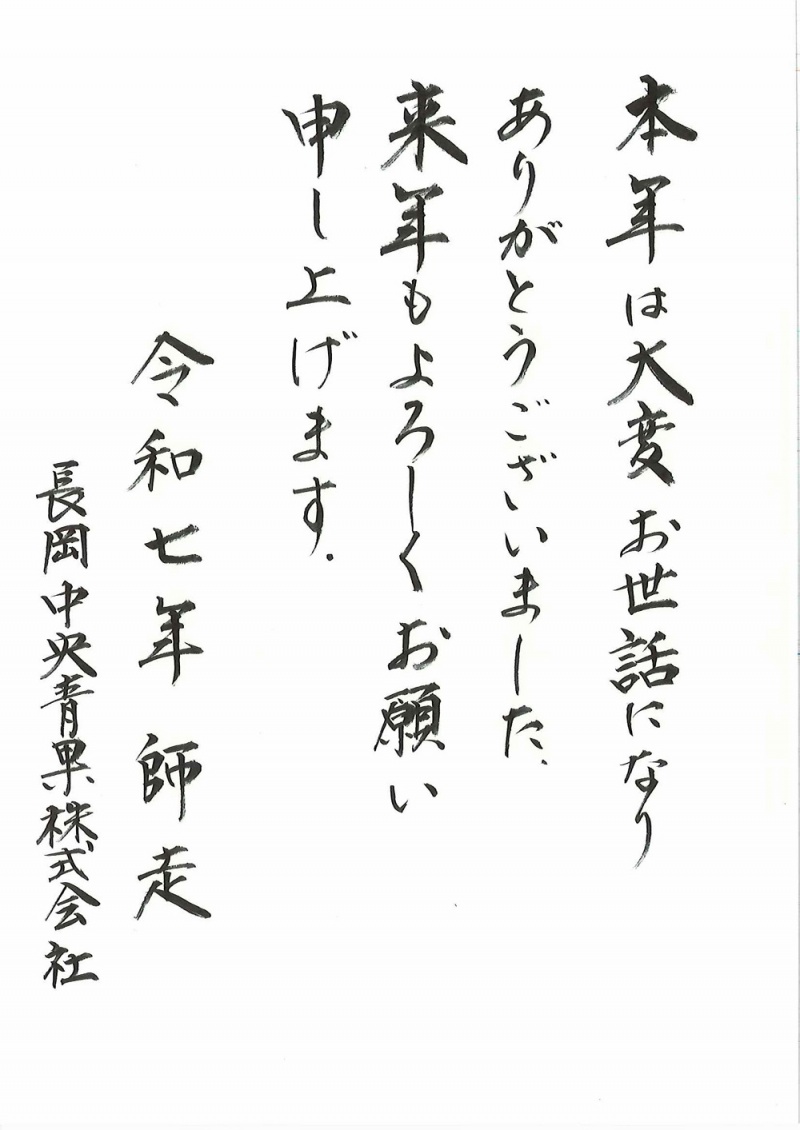 本年は大変お世話になり
ありがとうございました.
来年もよろしくお願い
申し上げます.
令和七年 師走
長岡中央青果株式会社